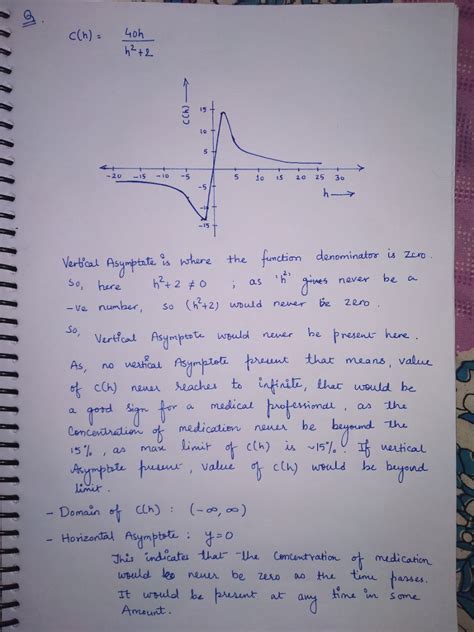 Q.
C(h) = 40h / h²+2
C(h) →
15
10
5
-20 -15 -10 -5 5 10 15 20 25 30
-5
h →
-15
Vertical Asymptote is where the function denominator is zero.
So, here h²+2 ≠ 0 ; as 'h²' gives never be a
-ve number, so (h²+2) would never be zero.
So, Vertical Asymptote would never be present here.
As, no vertical Asymptote present that means, value
of C(h) never reaches to infinite, that would be
a good sign for a medical professional, as the
Concentration of medication never be beyond the
15%, as max limit of C(h) is ~15%. If vertical
Asymptote present, value of C(h) would be beyond
limit.
- Domain of C(h) : (-∞, ∞)
- Horizontal Asymptote : y=0
This indicates that the concentration of medication
would never be zero as the time passes.
It would be present at any time in some
Amount.